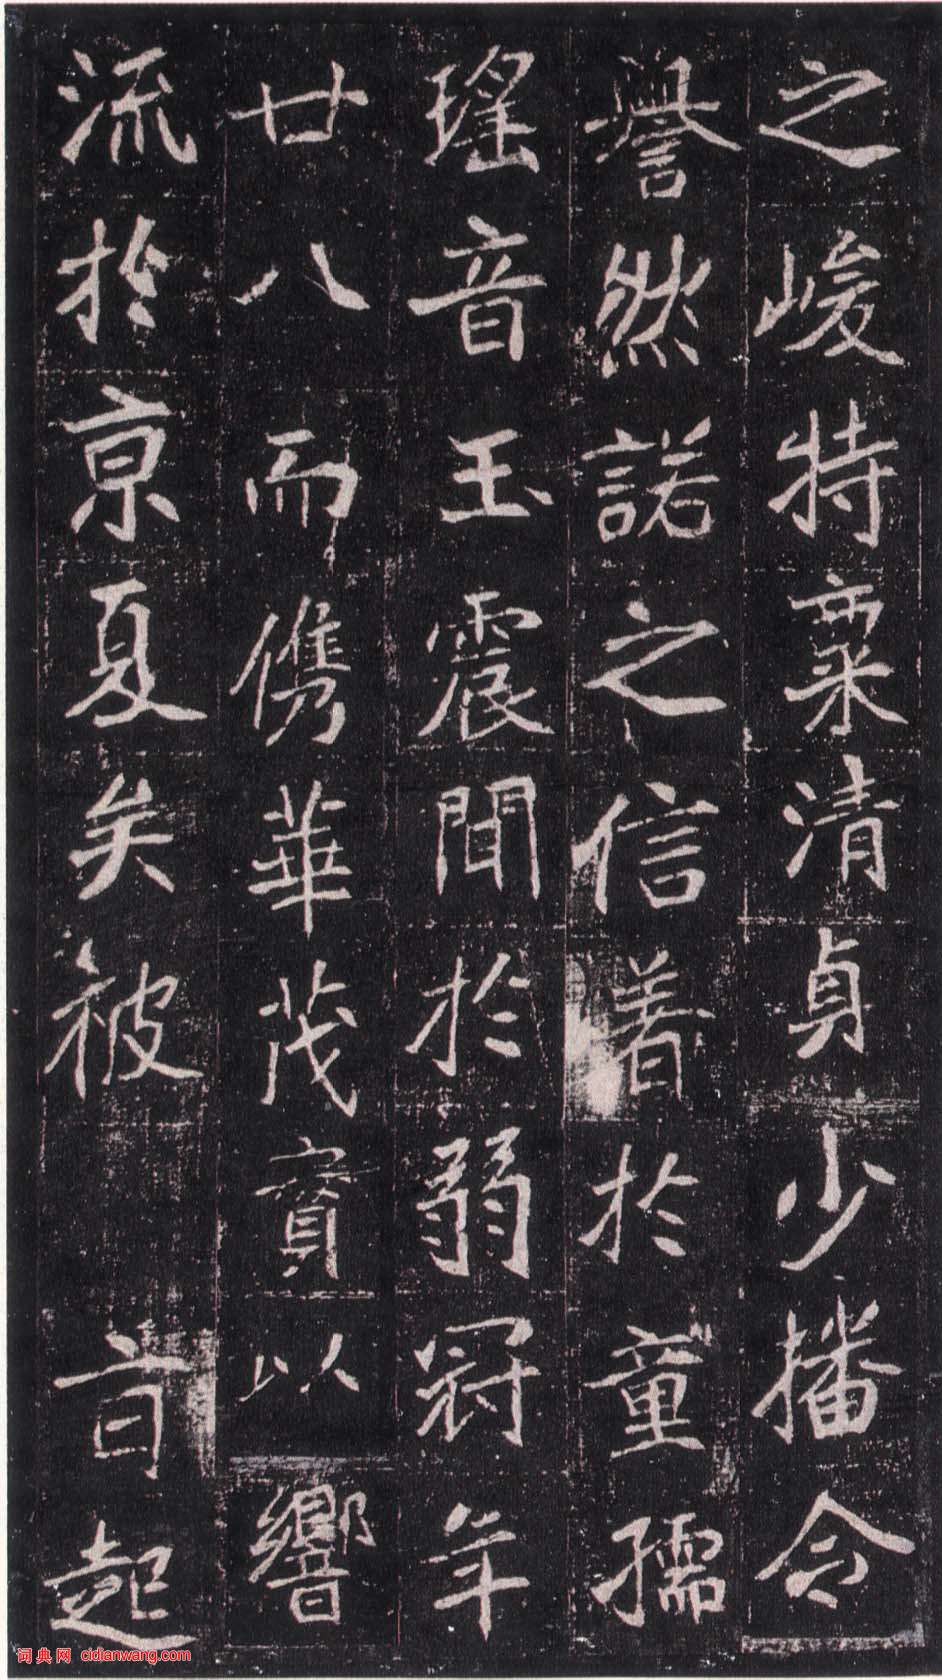 之峻特稟清貞少播令
譽然諾之信著於童孺
瑤音玉震聞於弱冠年
廿八而儁華茂實以響
流於京夏矣被 旨起
词典网 cidianwang.com